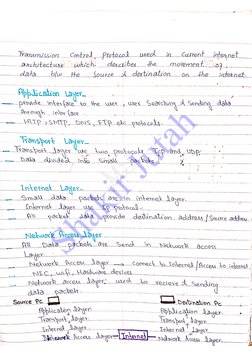 Transmission Control Protocol used in current internet
architecture which describes the movement of
data b/w the Source & destination on the internet
Application Layer
provide interface to the user, user Searching & Sending data
through interface
HTTP, SMTP, DNS, FTP etc protocols.
Transport Layer
Transport layer use two protocols TCP and UDP
Data divided into Small packets
Internet Layer
Small data packets are in internet layer.
Internet layer use IP protocol.
All packet data provide destination address/Source address
Network Access layer
All Data packets are Send in Network access
Layer.
Network Access layer → connect to Internet/Access to internet
NIC, wifi, Hardware devices
Network access layer used to recieve & sending
data packets.
Source Pc Destination Pc
Application layer. Application layer
Transport layer Transport layer.
Internet layer Internet layer
Network Access layer Internet Network Access layer.